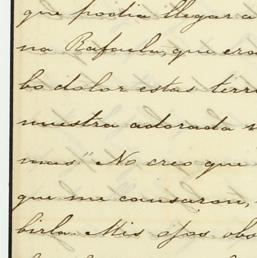 que podia llegar a
na Rafaela, que era
bo dolor estas terri
nuestra adorada
mas" No creo que
que me causaron,
birla. Mis ojos